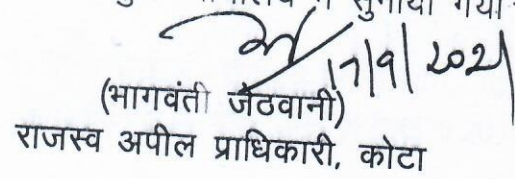 सुनाया गया
17/9/2021
(भागवंती जेठवानी)
राजस्व अपील प्राधिकारी, कोटा